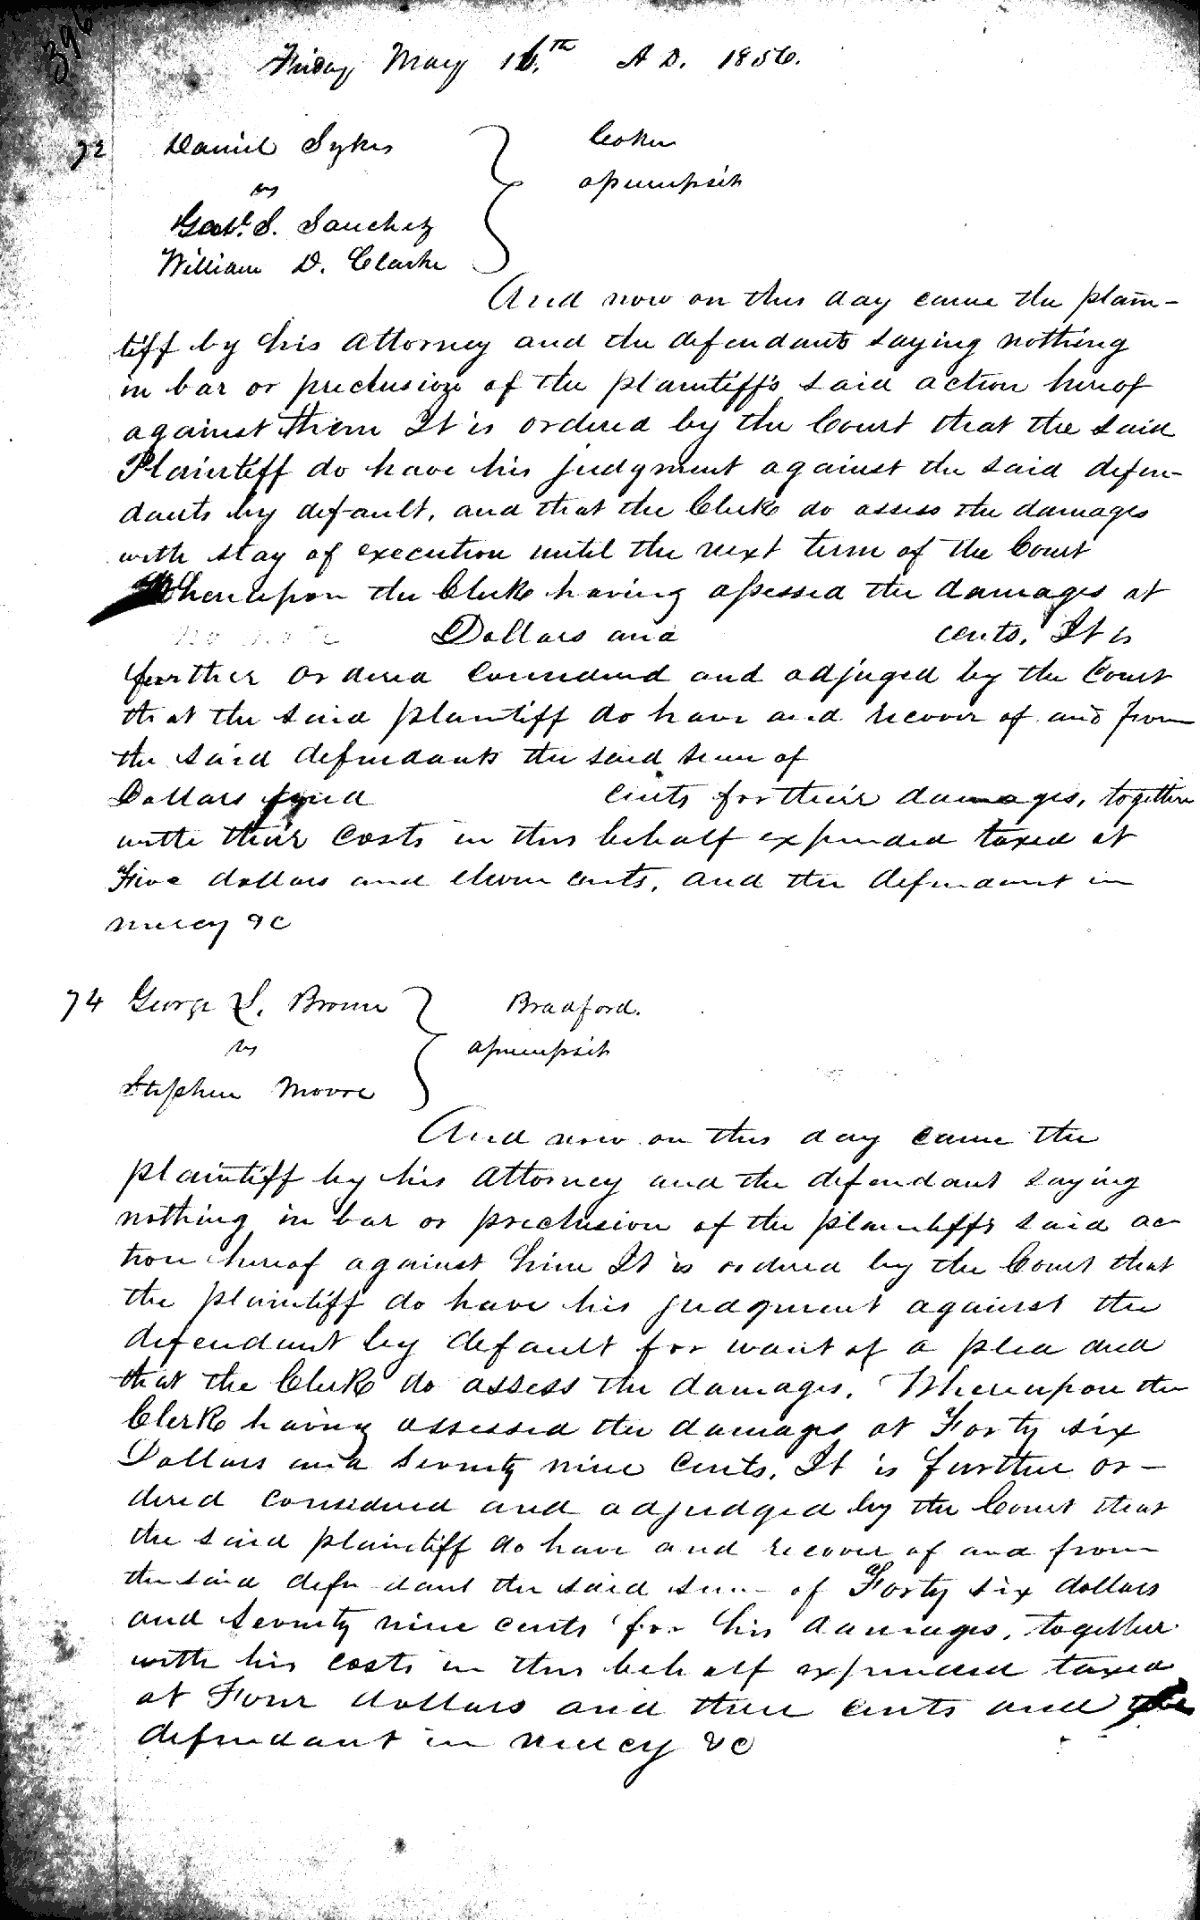 396
Friday May 16th A D. 1856.
72 Daniel Sykes Coker
vs assumpsit
Gabl. S. Sanchez
William D. Clarke
And now on this day came the plain-
tiff by his Attorney and the defendants saying nothing
in bar or preclusion of the plaintiff's said action hereof
against them It is ordered by the Court that the said
Plaintiff do have his judgment against the said defen-
dants by default, and that the Clerk do assess the damages
with stay of execution until the next term of the Court
Whereupon the Clerk having assessed the damages at
no note Dollars and cents. It is
further ordered considered and adjuged by the Court
that the said plaintiff do have and recover of and from
the said defendants the said sum of
Dollars and cents for their damages, together
with their costs in this behalf expended taxed at
Five dollars and eleven cents, and the defendant in
mercy &c
74 George L. Brown Bradford.
vs assumpsit
Stephen Moore
And now on this day came the
plaintiff by his Attorney and the defendant saying
nothing in bar or preclusion of the plaintiffs said ac
tion hereof against him It is ordered by the Court that
the plaintiff do have his judgment against the
defendant by default for want of a plea and
that the Clerk do assess the damages. Whereupon the
Clerk having assessed the damages at Forty six
Dollars and Seventy nine Cents. It is further or-
dered considered and adjudged by the Court that
the said plaintiff do have and recover of and from
the said defendant the said sum of Forty six dollars
and Seventy nine cents for his damages, together
with his costs in this behalf expended taxed
at Four dollars and three cents and the
defendant in mercy &c